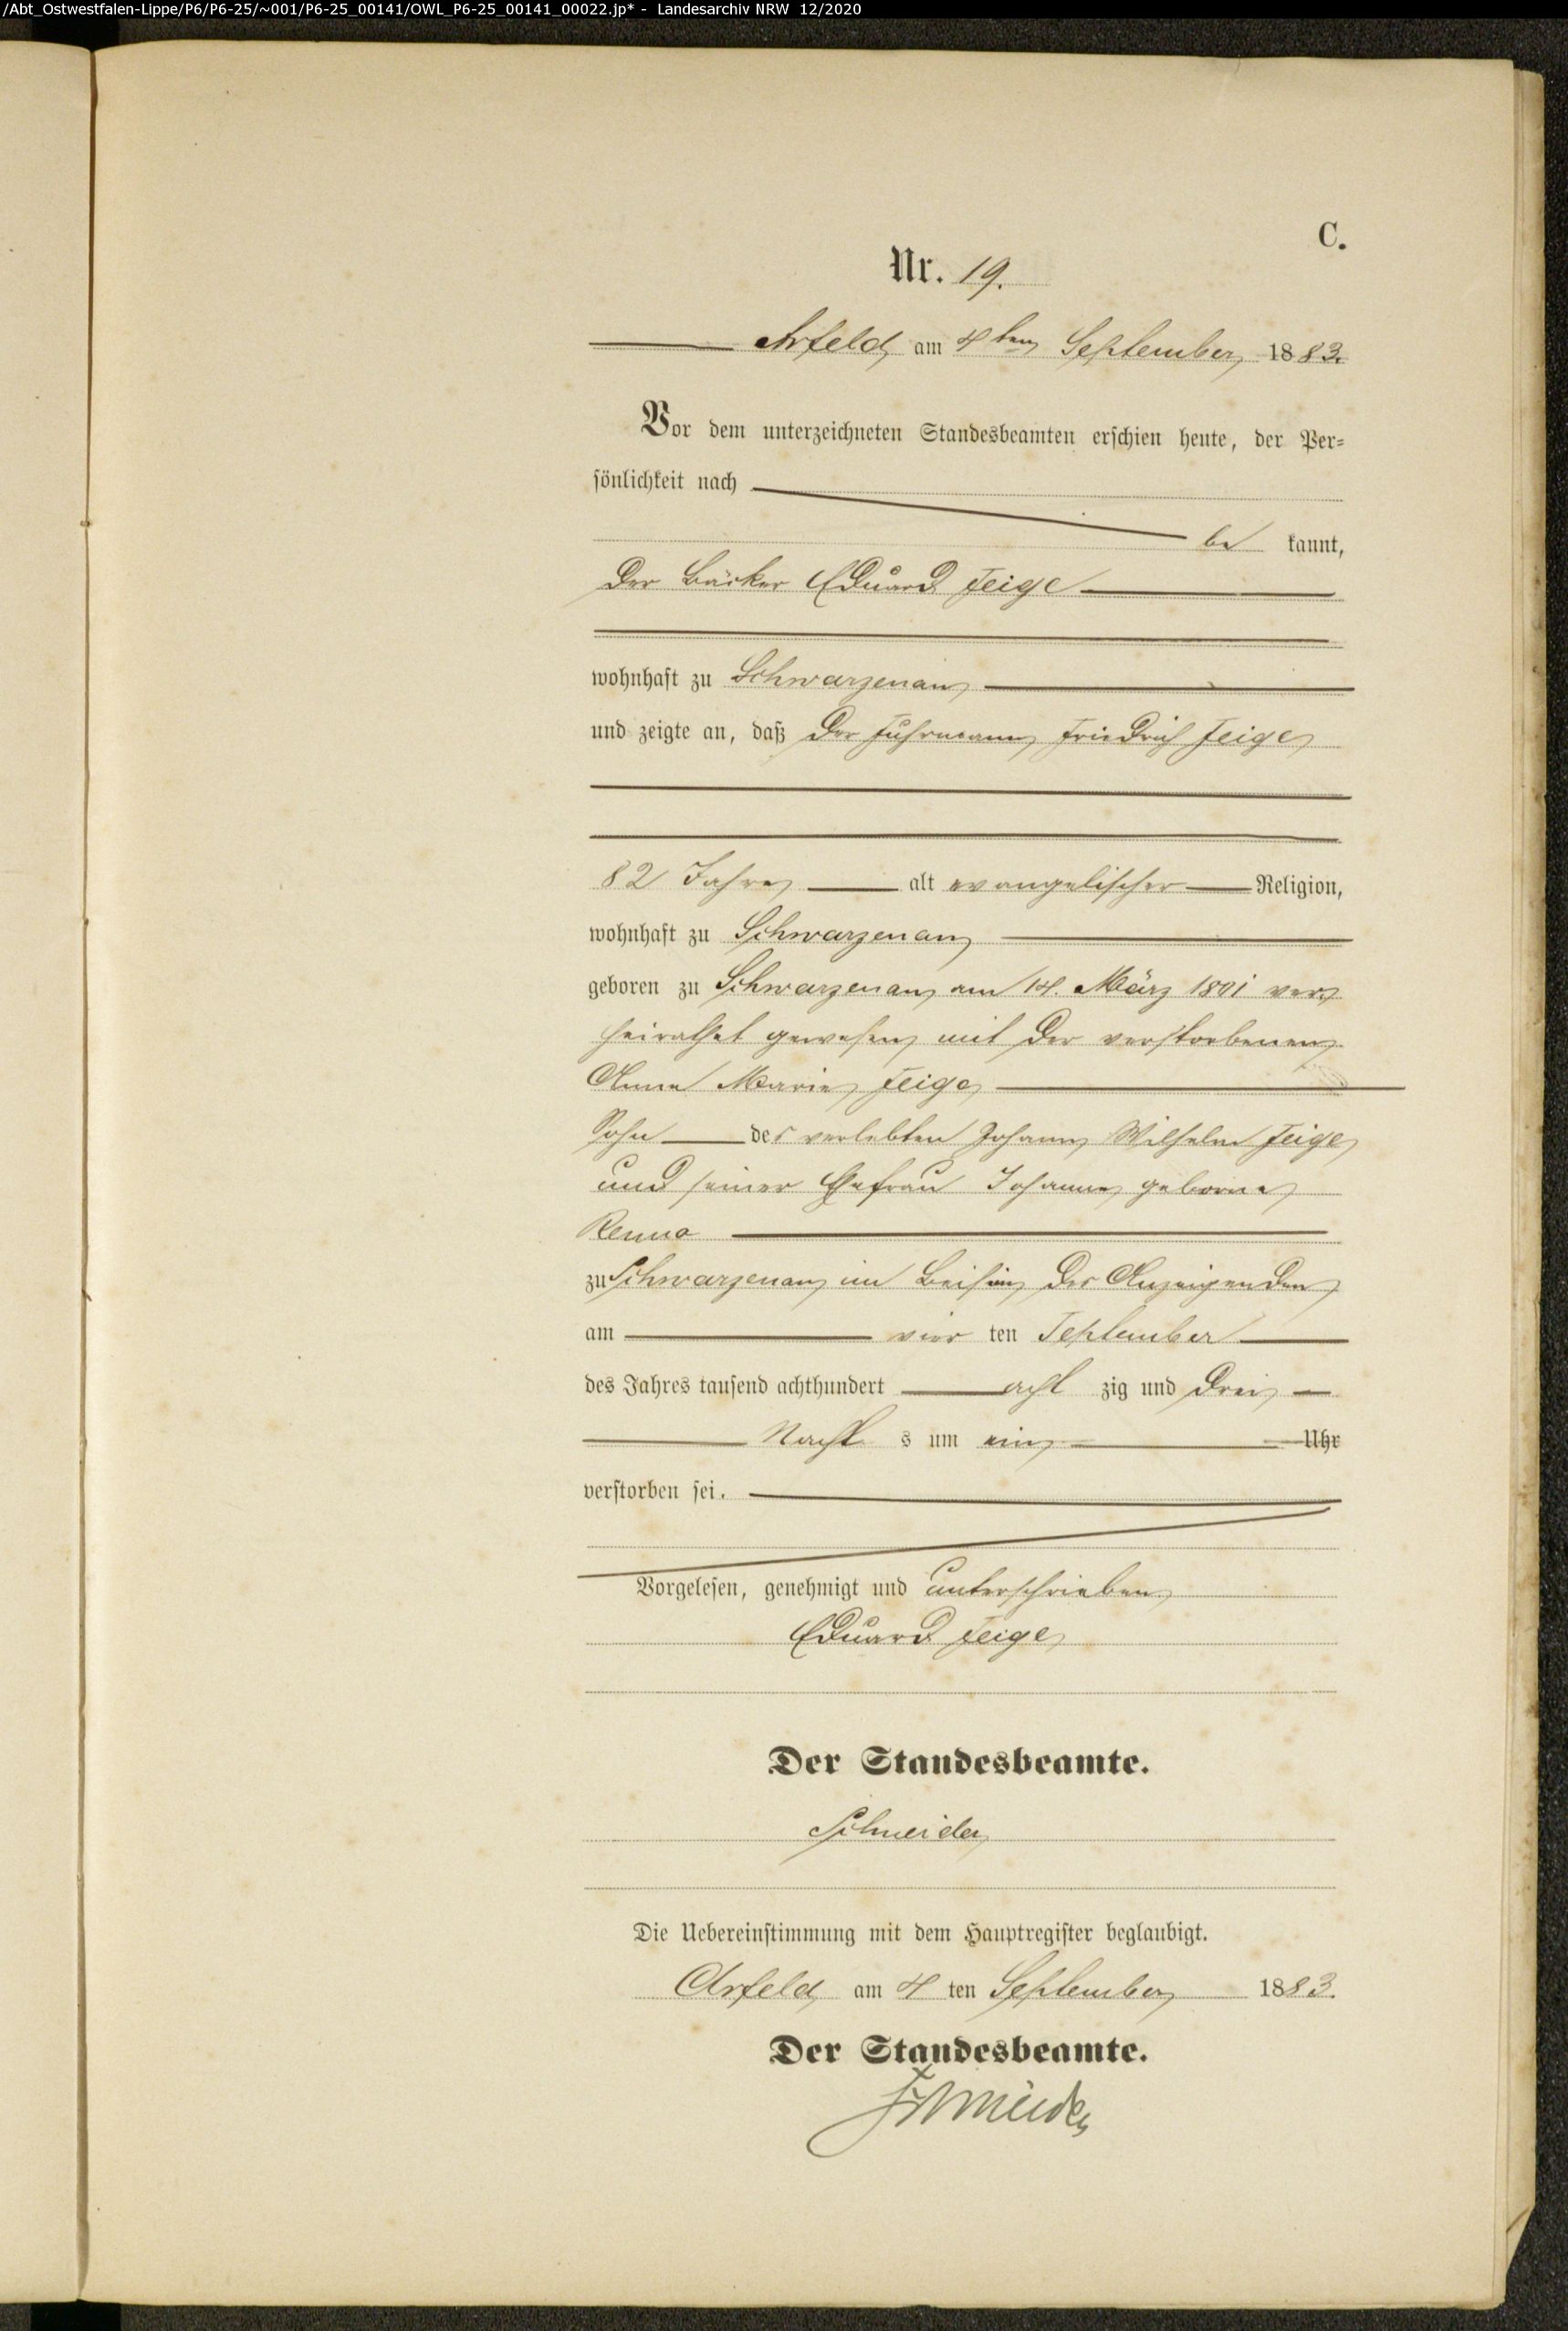 /Abt_Ostwestfalen-Lippe/P6/P6-25/~001/P6-25_00141/OWL_P6-25_00141_00022.jp* - Landesarchiv NRW 12/2020
C.
Nr. 19.
Arfeld, am 4ten September 1883.
Vor dem unterzeichneten Standesbeamten erschien heute, der Per=
sönlichkeit nach
be kannt,
der Bäcker Eduard Feige
wohnhaft zu Schwarzenau
und zeigte an, daß der Fuhrmann Friedrich Feige
82 Jahre alt evangelischer Religion,
wohnhaft zu Schwarzenau
geboren zu Schwarzenau am 14. März 1801 ver
heirathet gewesen mit der verstorbenen
Anna Marie Feige
Sohn des verlebten Johann Wilhelm Feige
und seiner Ehefrau Johanne geborne
Renno
zu Schwarzenau im Beisein des Anzeigenden
am vier ten September
des Jahres tausend achthundert acht zig und drei
Nacht s um ein Uhr
verstorben sei.
Vorgelesen, genehmigt und unterschrieben
Eduard Feige
Der Standesbeamte.
Schneider
Die Uebereinstimmung mit dem Hauptregister beglaubigt.
Arfeld, am 4 ten September 1883.
Der Standesbeamte.
Schneider